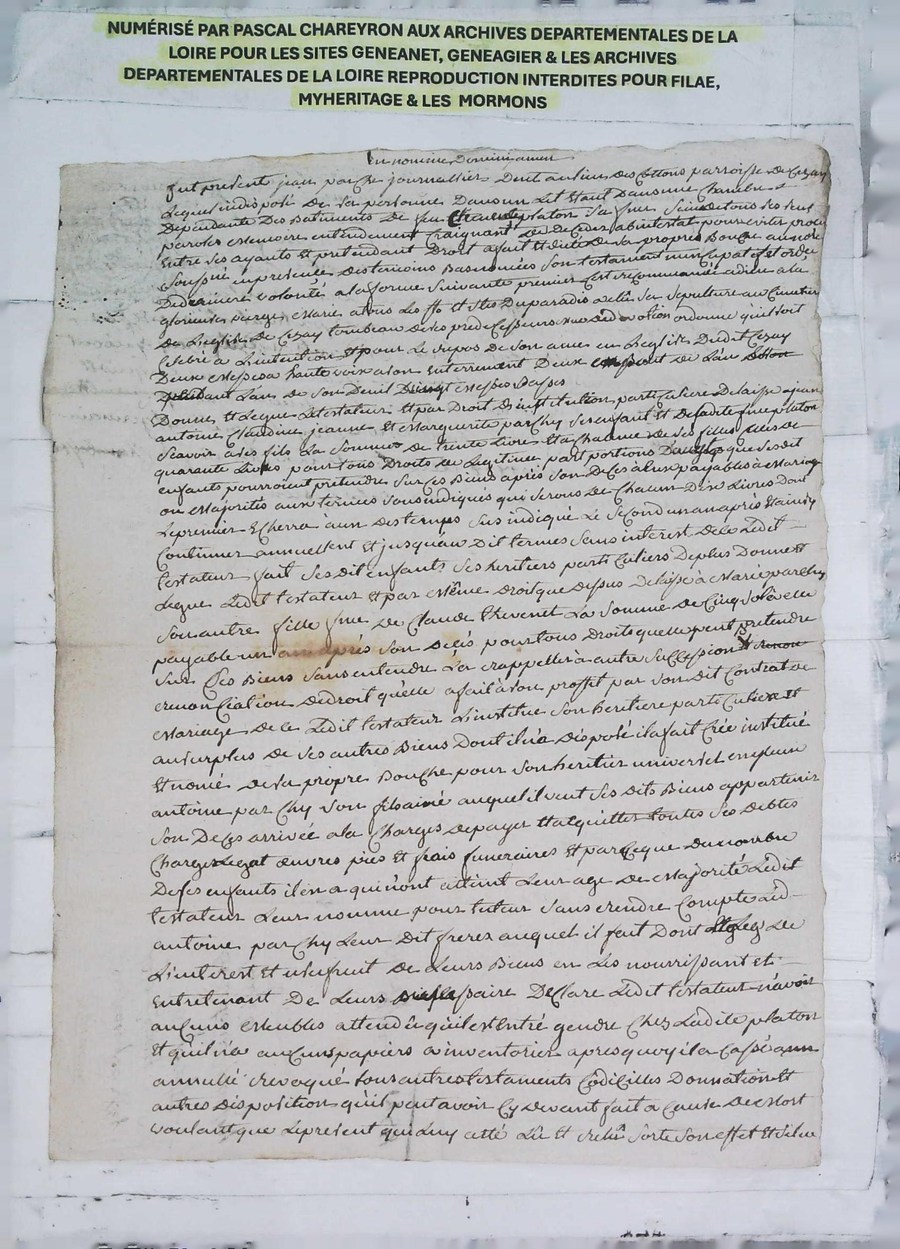 NUMÉRISÉ PAR PASCAL CHAREYRON AUX ARCHIVES DEPARTEMENTALES DE LA
LOIRE POUR LES SITES GENEANET, GENEAGIER & LES ARCHIVES
DEPARTEMENTALES DE LA LOIRE REPRODUCTION INTERDITES POUR FILAE,
MYHERITAGE & LES MORMONS
In nomine Domini amen
fut present jean parchi journallier Demt au lieu des Cottons parroisse de Cezay
Lequel indisposé de sa personne Dans un Lit Etant Dans une Chambre
Dependante Des Batiments De feu platon sa fme sain de tous ses sens
parolles memoire entendement Craignant de Deceder abintestat pour eviter procé
Entre ses ayants et pretendant Droit a fait et dicté de sa propre Bouche au nore
soussné en presence des temoins Basnomées son testament nuncupatif et ordce
De derniere volonté a la forme suivante premier s'est recommandé a dieu a la
glorieuse vierge Marie a tous les sts et stes Du paradis a elu sa sepulture au Cimetier
De L'eglise de Cezay tombeau de ses predecesseurs ordonne qu'il soit
Celebré a L'intention Et pour Le repos de son ame en Leglise Dudit Cezay
Deux Messes a haute voix a son enterrement Deux au De L'an
L'an de son Deuil Messes Basses
Donne Et Legue Le testateur Et par Droit D'institution particuliere Delaisse a jean
antoine Claudine jeanne et Marguerite parchy ses enfant Et De ladite fme platon
scavoir a ses fils La somme de trente Livres Et a Chacune de ses filles celles de
quarante Livres pour tous Droits de Legitime part portions que ses dit
enfants pourroient pretendre sur ces Biens après son Deces a Eux payables à Mariage
ou Majorités aux termes sous indiqués qui seront de Chacun Dix Livres Dont
Le premier Echerra à un des temps sus indiqué Le second un an après Et ainsy
Continuer annuellemt Et jusqu'au Dit termes sans interest de ce Ledit
testateur fait ses dit enfants ses heritiers particuliers De plus Donne Et
Legue Ledit testateur Et par Même Droit que dessus Delaisse à Marie parchy
son autre fille fme de Claude thevenet La somme De Cinq sols a elle
payable un an après son Decés pour tous Droits quelle peut pretendre
sur Ces Biens sans entendre La rappeller à autre succession
renonciation du droit qu'elle a fait à son proffit par son dit Contrat de
Mariage de ce Ledit testateur L'institue son heritiere particuliere Et
au surplus de ses autres Biens Dont il n'a disposé il a fait Crée institué
Et nomé de sa propre Bouche pour son heritier universel en plein
antoine parchy son fils ainé auquel il veut ses dits Biens appartenir
son Deces arrivée a la Charges de payer Et acquitter toutes ses Debtes
Charges Legat œuvres pies et frais funeraires Et parceque du nombre
De ses enfants il en a qui n'ont atteint Leur age de Majorité Ledit
testateur Leur nomme pour tuteur sans rendre Compte aud
antoine parchy Leur Dit freres auquel il fait Dont de
L'interest Et usufruit de Leurs Biens en Les nourrissant et
Entretenant De Leurs Declare Ledit testateur n'avoir
aucuns Meubles attendû qu'il est Entré gendre Chez Ladite platon
Et qu'il n'a aucuns papiers a inventorier apres quoy il a Cassé
annullé revoqué tous autres testaments Codicilles Donnation Et
autres disposition qu'il peut avoir Cy devant fait a Cause De Mort
voulant que Le present qui Luy a été Lû Et relû sorte son effet Et